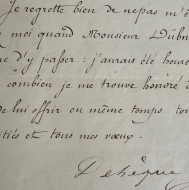 Je regrette bien de n'epas m'ê
moi quand Monsieur Dübn
d'y passer : j'aurais été heure
combien je me trouve honoré d
de lui offrir en même temps to
tiés et tous mes vœux.
Dehèque